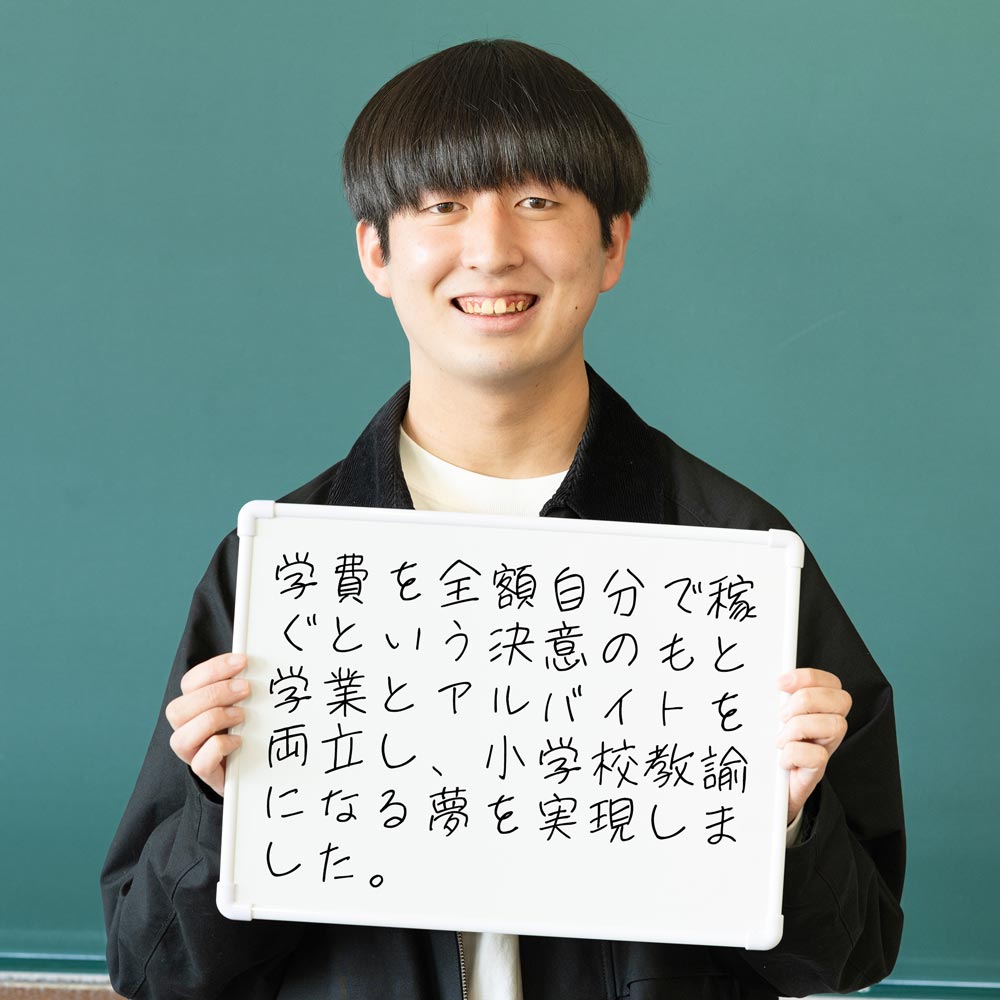 学費を全額自分で稼
ぐという決意のもと
学業とアルバイトを
両立し、小学校教諭
になる夢を実現しま
した。